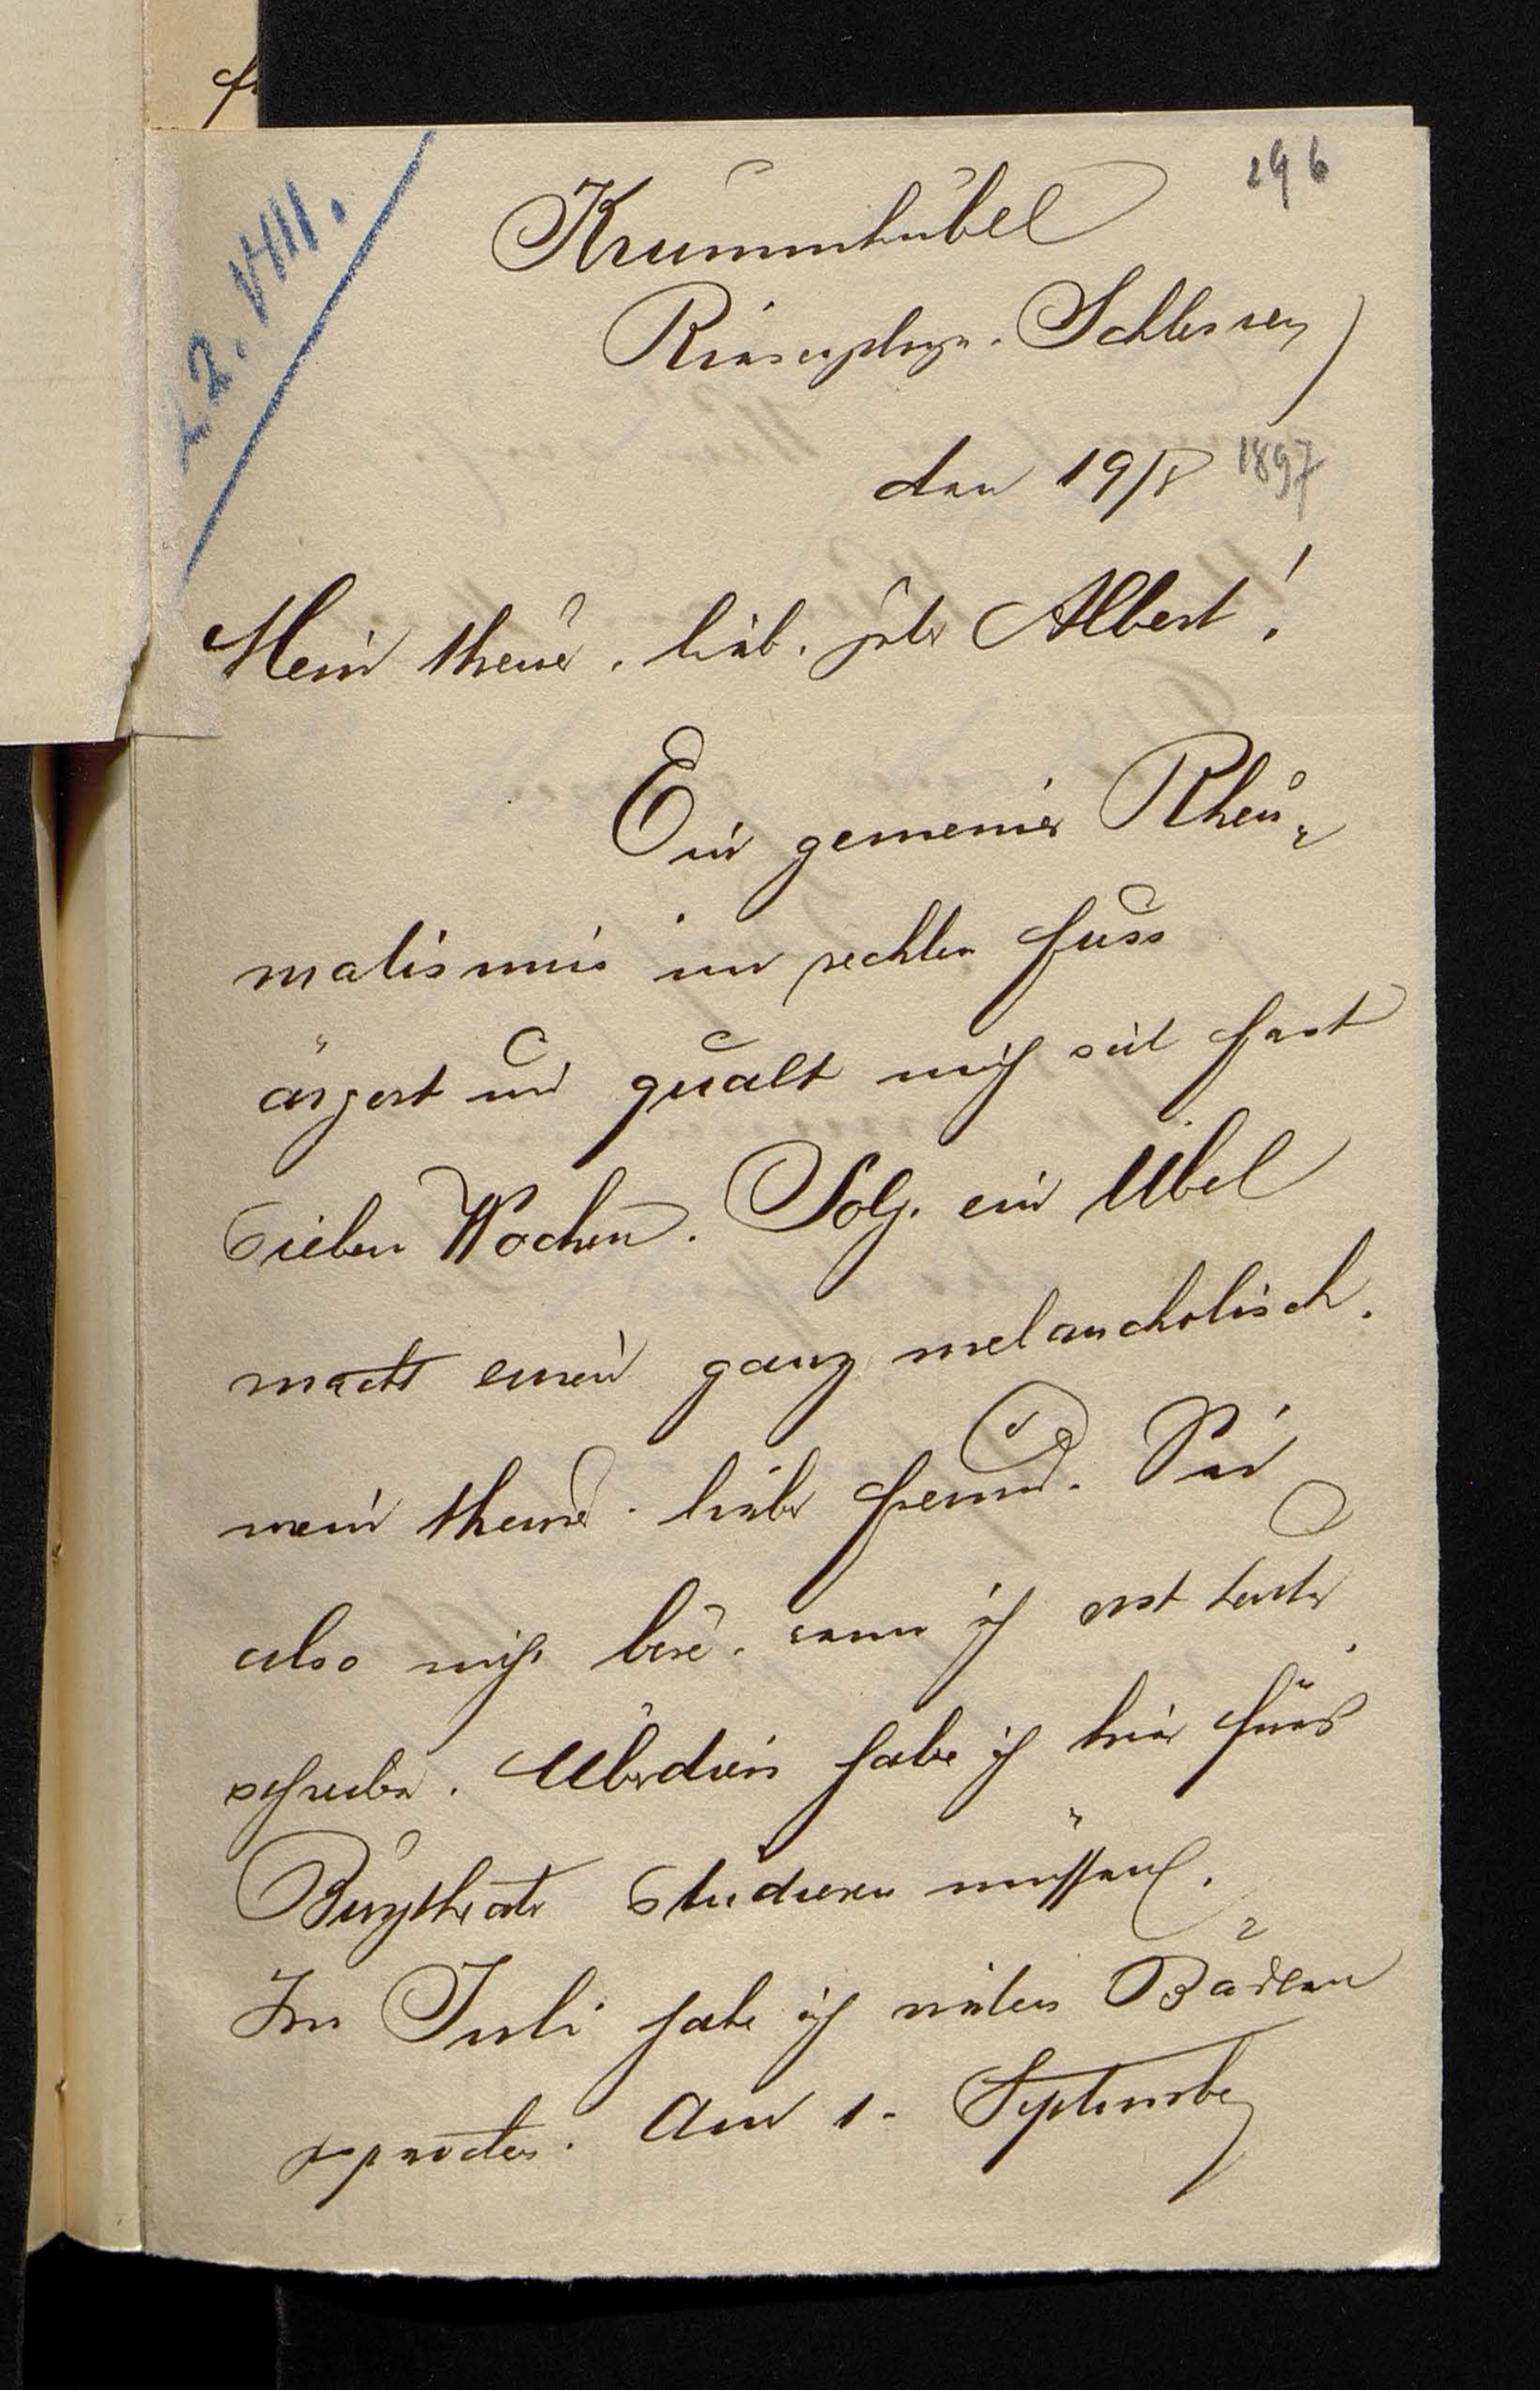 296
22. VIII.
Krummhübel
Riesengebirge. Schlesien
den 19/8 1897
Mein theurer, lieber, guter Albert!
Ein gemeiner Rheu-
matismus im rechten Fuss
ärgert und quält mich seit fast
sieben Wochen. Solch ein Übel
macht einen ganz melancholisch.
mein theurer lieber Freund. Sei
also nicht böse, wenn ich erst heute
schreibe. Überdies habe ich hier fürs
Burgtheater studieren müssen.
Im Juli habe ich in den Bädern
Am 1. September